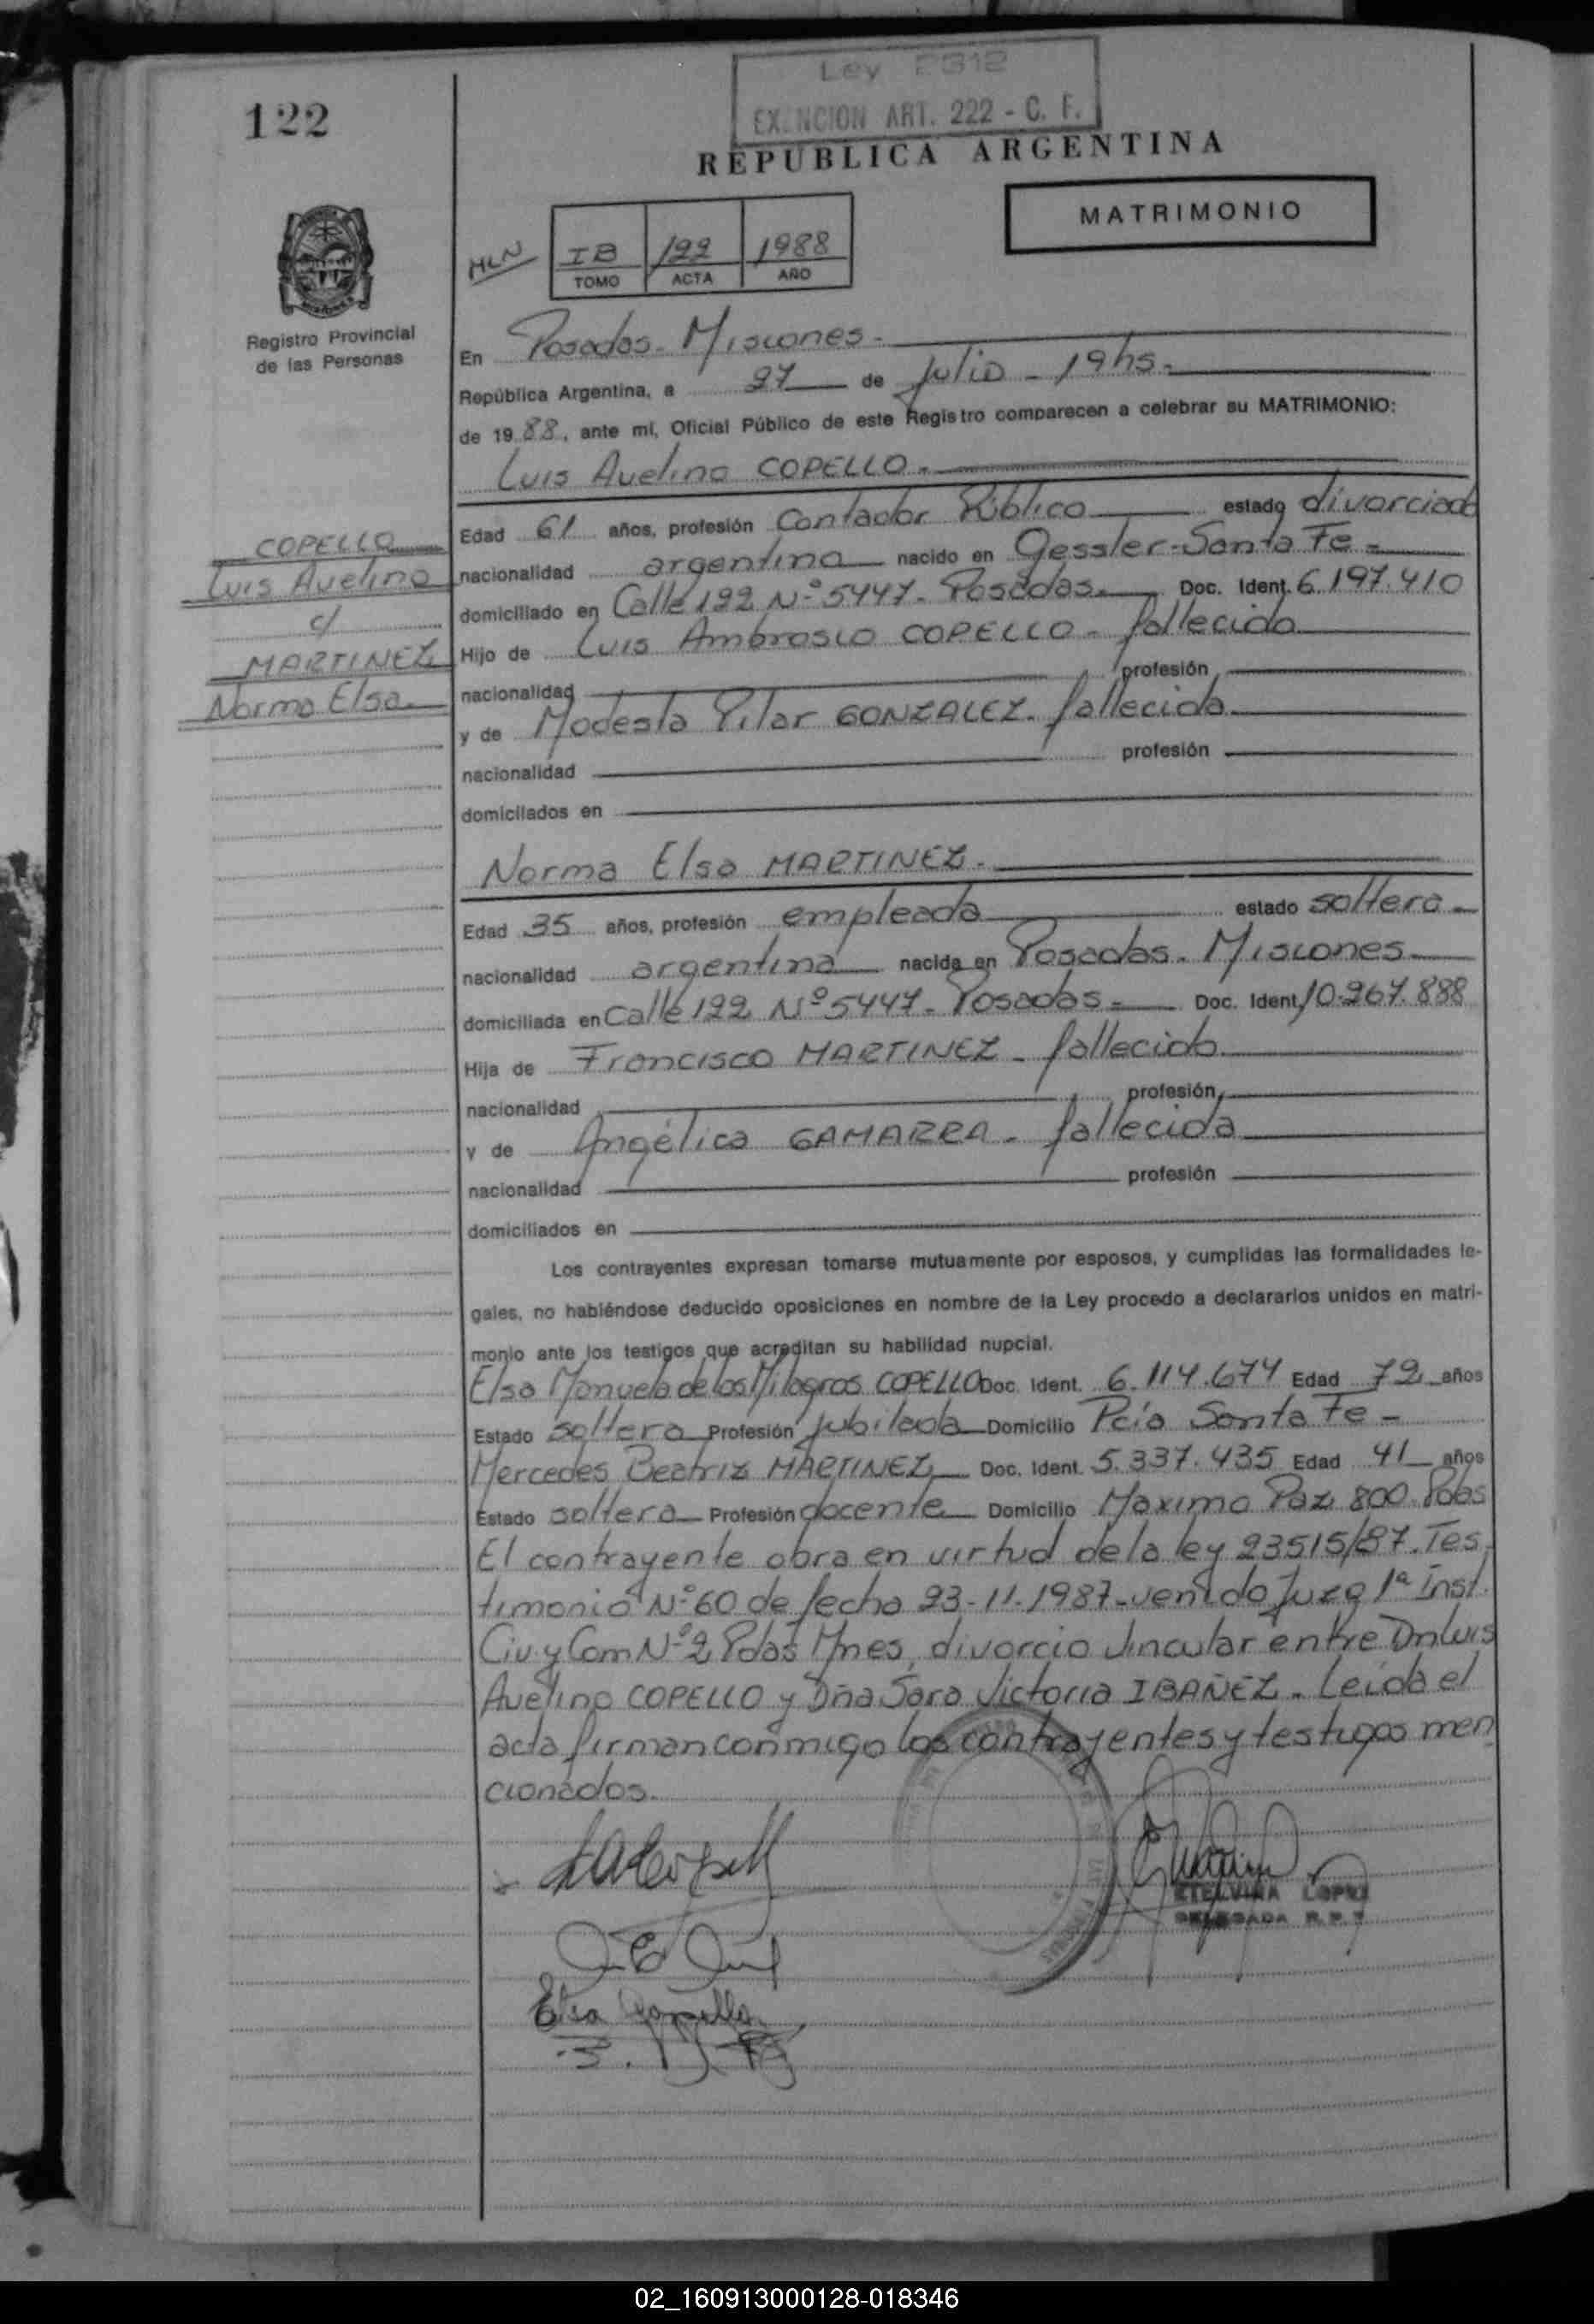 Ley 2312
EXENCION ART. 222 - C. F.
122
REPUBLICA ARGENTINA
MATRIMONIO
HLN
IB 122 1988
TOMO ACTA AÑO
Registro Provincial
de las Personas
En Posadas - Misiones -
República Argentina, a 27 de Julio - 19 hs -
de 1988, ante mí, Oficial Público de este Registro comparecen a celebrar su MATRIMONIO:
Luis Avelino COPELLO -
COPELLO
Luis Avelino
c/
MARTINEZ
Norma Elsa
Edad 61 años, profesión Contador Público estado divorciado
nacionalidad argentina nacido en Gessler - Santa Fe -
domiciliado en Calle 122 Nº 5447 - Posadas - Doc. Ident. 6.197.410
Hijo de Luis Ambrosio COPELLO - fallecido
nacionalidad profesión
y de Modesta Pilar GONZALEZ - fallecida
nacionalidad profesión
domiciliados en
Norma Elsa MARTINEZ -
Edad 35 años, profesión empleada estado soltera -
nacionalidad argentina nacida en Posadas - Misiones
domiciliada en Calle 122 Nº 5447 - Posadas - Doc. Ident. 10.267.888
Hija de Francisco MARTINEZ - fallecido
nacionalidad profesión
y de Angélica GAMARRA - fallecida
nacionalidad profesión
domiciliados en
Los contrayentes expresan tomarse mutuamente por esposos, y cumplidas las formalidades le-
gales, no habiéndose deducido oposiciones en nombre de la Ley procedo a declararlos unidos en matri-
monio ante los testigos que acreditan su habilidad nupcial.
Elsa Manuela de los Milagros COPELLO Doc. Ident. 6.114.674 Edad 72 años
Estado soltera Profesión Jubilada Domicilio Pcia Santa Fe -
Mercedes Beatriz MARTINEZ Doc. Ident. 5.337.435 Edad 41 años
Estado soltera Profesión docente Domicilio Maximo Paz 800 - Pdas
El contrayente obra en virtud de la ley 23515/87. Tes
timonio Nº 60 de fecha 23-11-1987 - venido Juzg 1ª Inst.
Civ y Com Nº 2 Pdas Mnes, divorcio vincular entre Dn Luis
Avelino COPELLO y Dña Sara Victoria IBAÑEZ - Leída el
acta firman conmigo los contrayentes y testigos men
cionados.
Elsa Copello
ETELVINA LOPEZ
DELEGADA R. P. P.
02_160913000128-018346